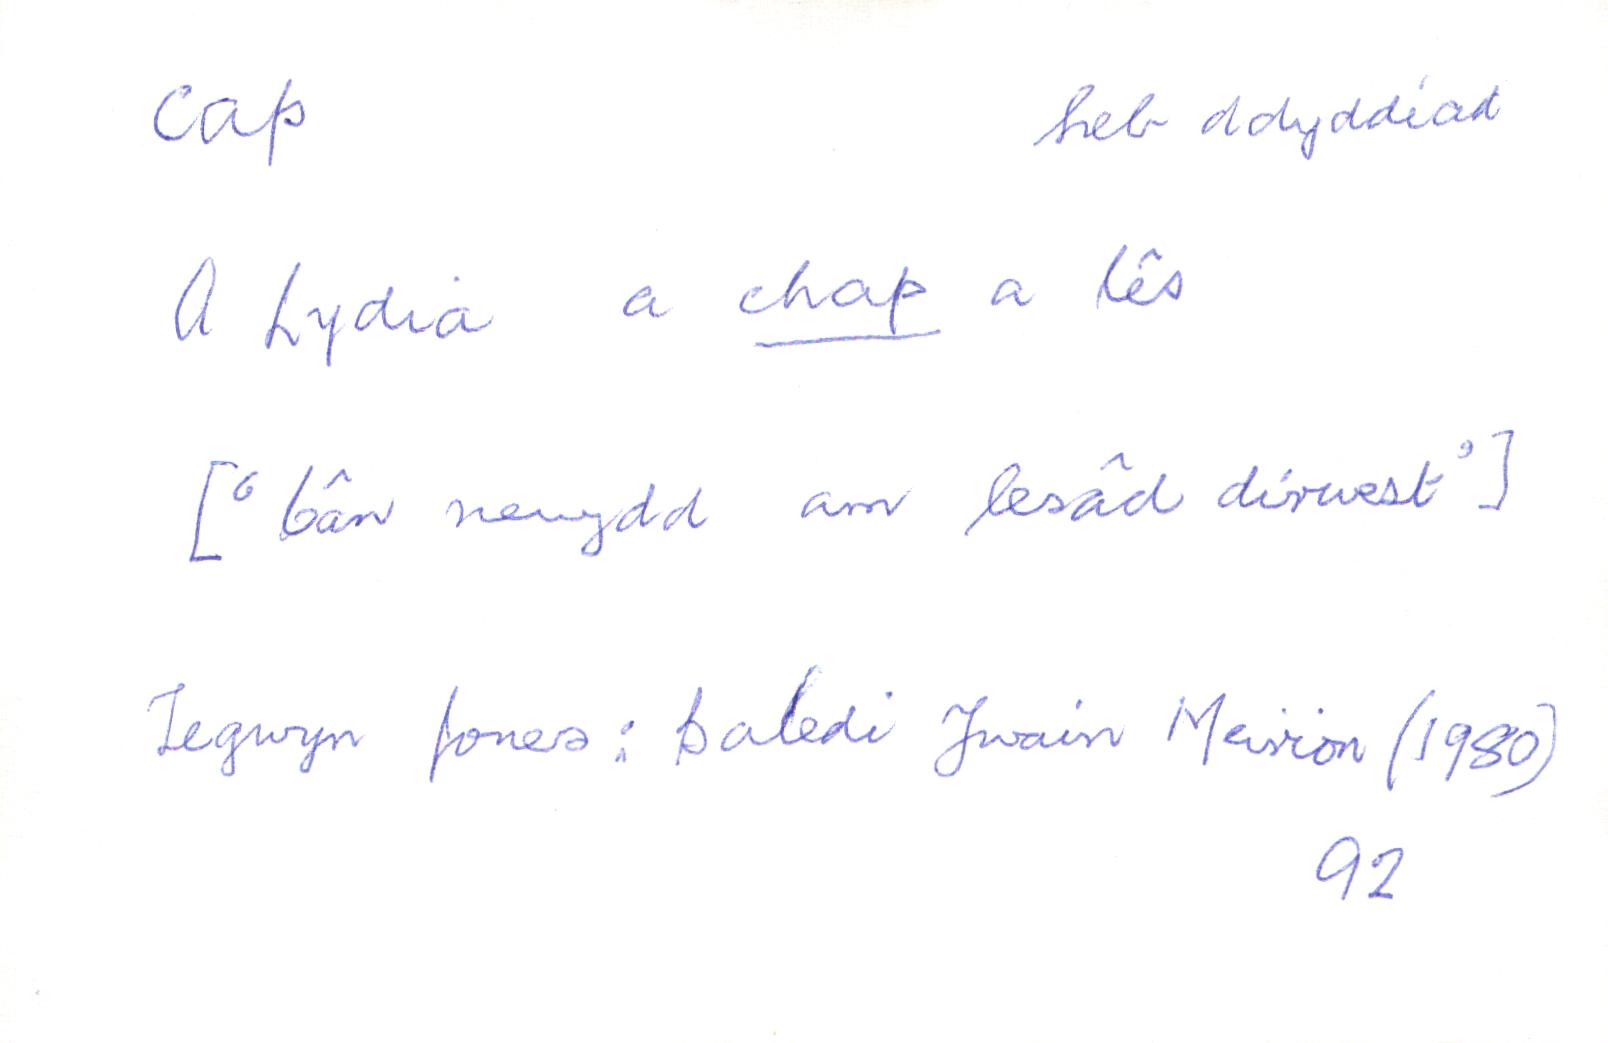 cap heb ddyddiad
A Lydia a chap a lês
[‘Cân newydd am lesâd dirwest’]
Tegwyn Jones: Baledi Ywain Meirion (1980)
92